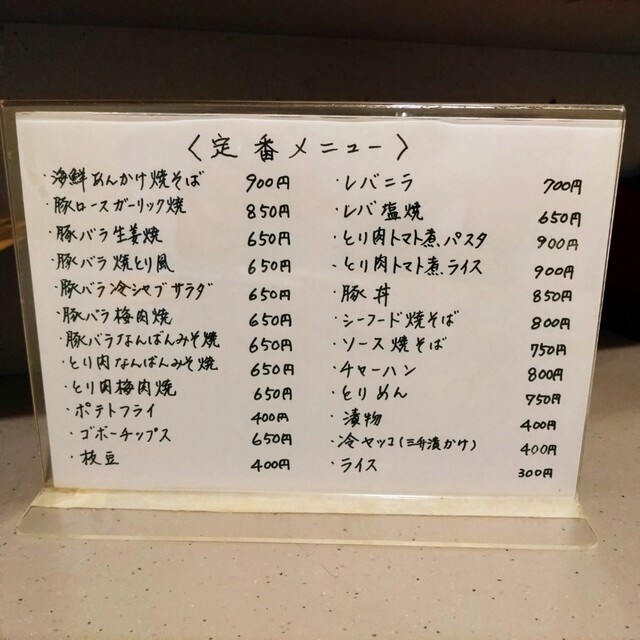 〈定番メニュー〉
・海鮮あんかけ焼そば 900円
・豚ロースガーリック焼 850円
・豚バラ生姜焼 650円
・豚バラ焼とり風 650円
・豚バラ冷シャブサラダ 650円
・豚バラ梅肉焼 650円
・豚バラなんばんみそ焼 650円
・とり肉なんばんみそ焼 650円
・とり肉梅肉焼 650円
・ポテトフライ 400円
・ゴボーチップス 650円
・枝豆 400円
・レバニラ 700円
・レバ塩焼 650円
・とり肉トマト煮.パスタ 900円
・とり肉トマト煮.ライス 900円
・豚丼 850円
・シーフード焼そば 800円
・ソース焼そば 750円
・チャーハン 800円
・とりめん 750円
・漬物 400円
・冷ヤッコ(三升漬かけ) 400円
・ライス 300円